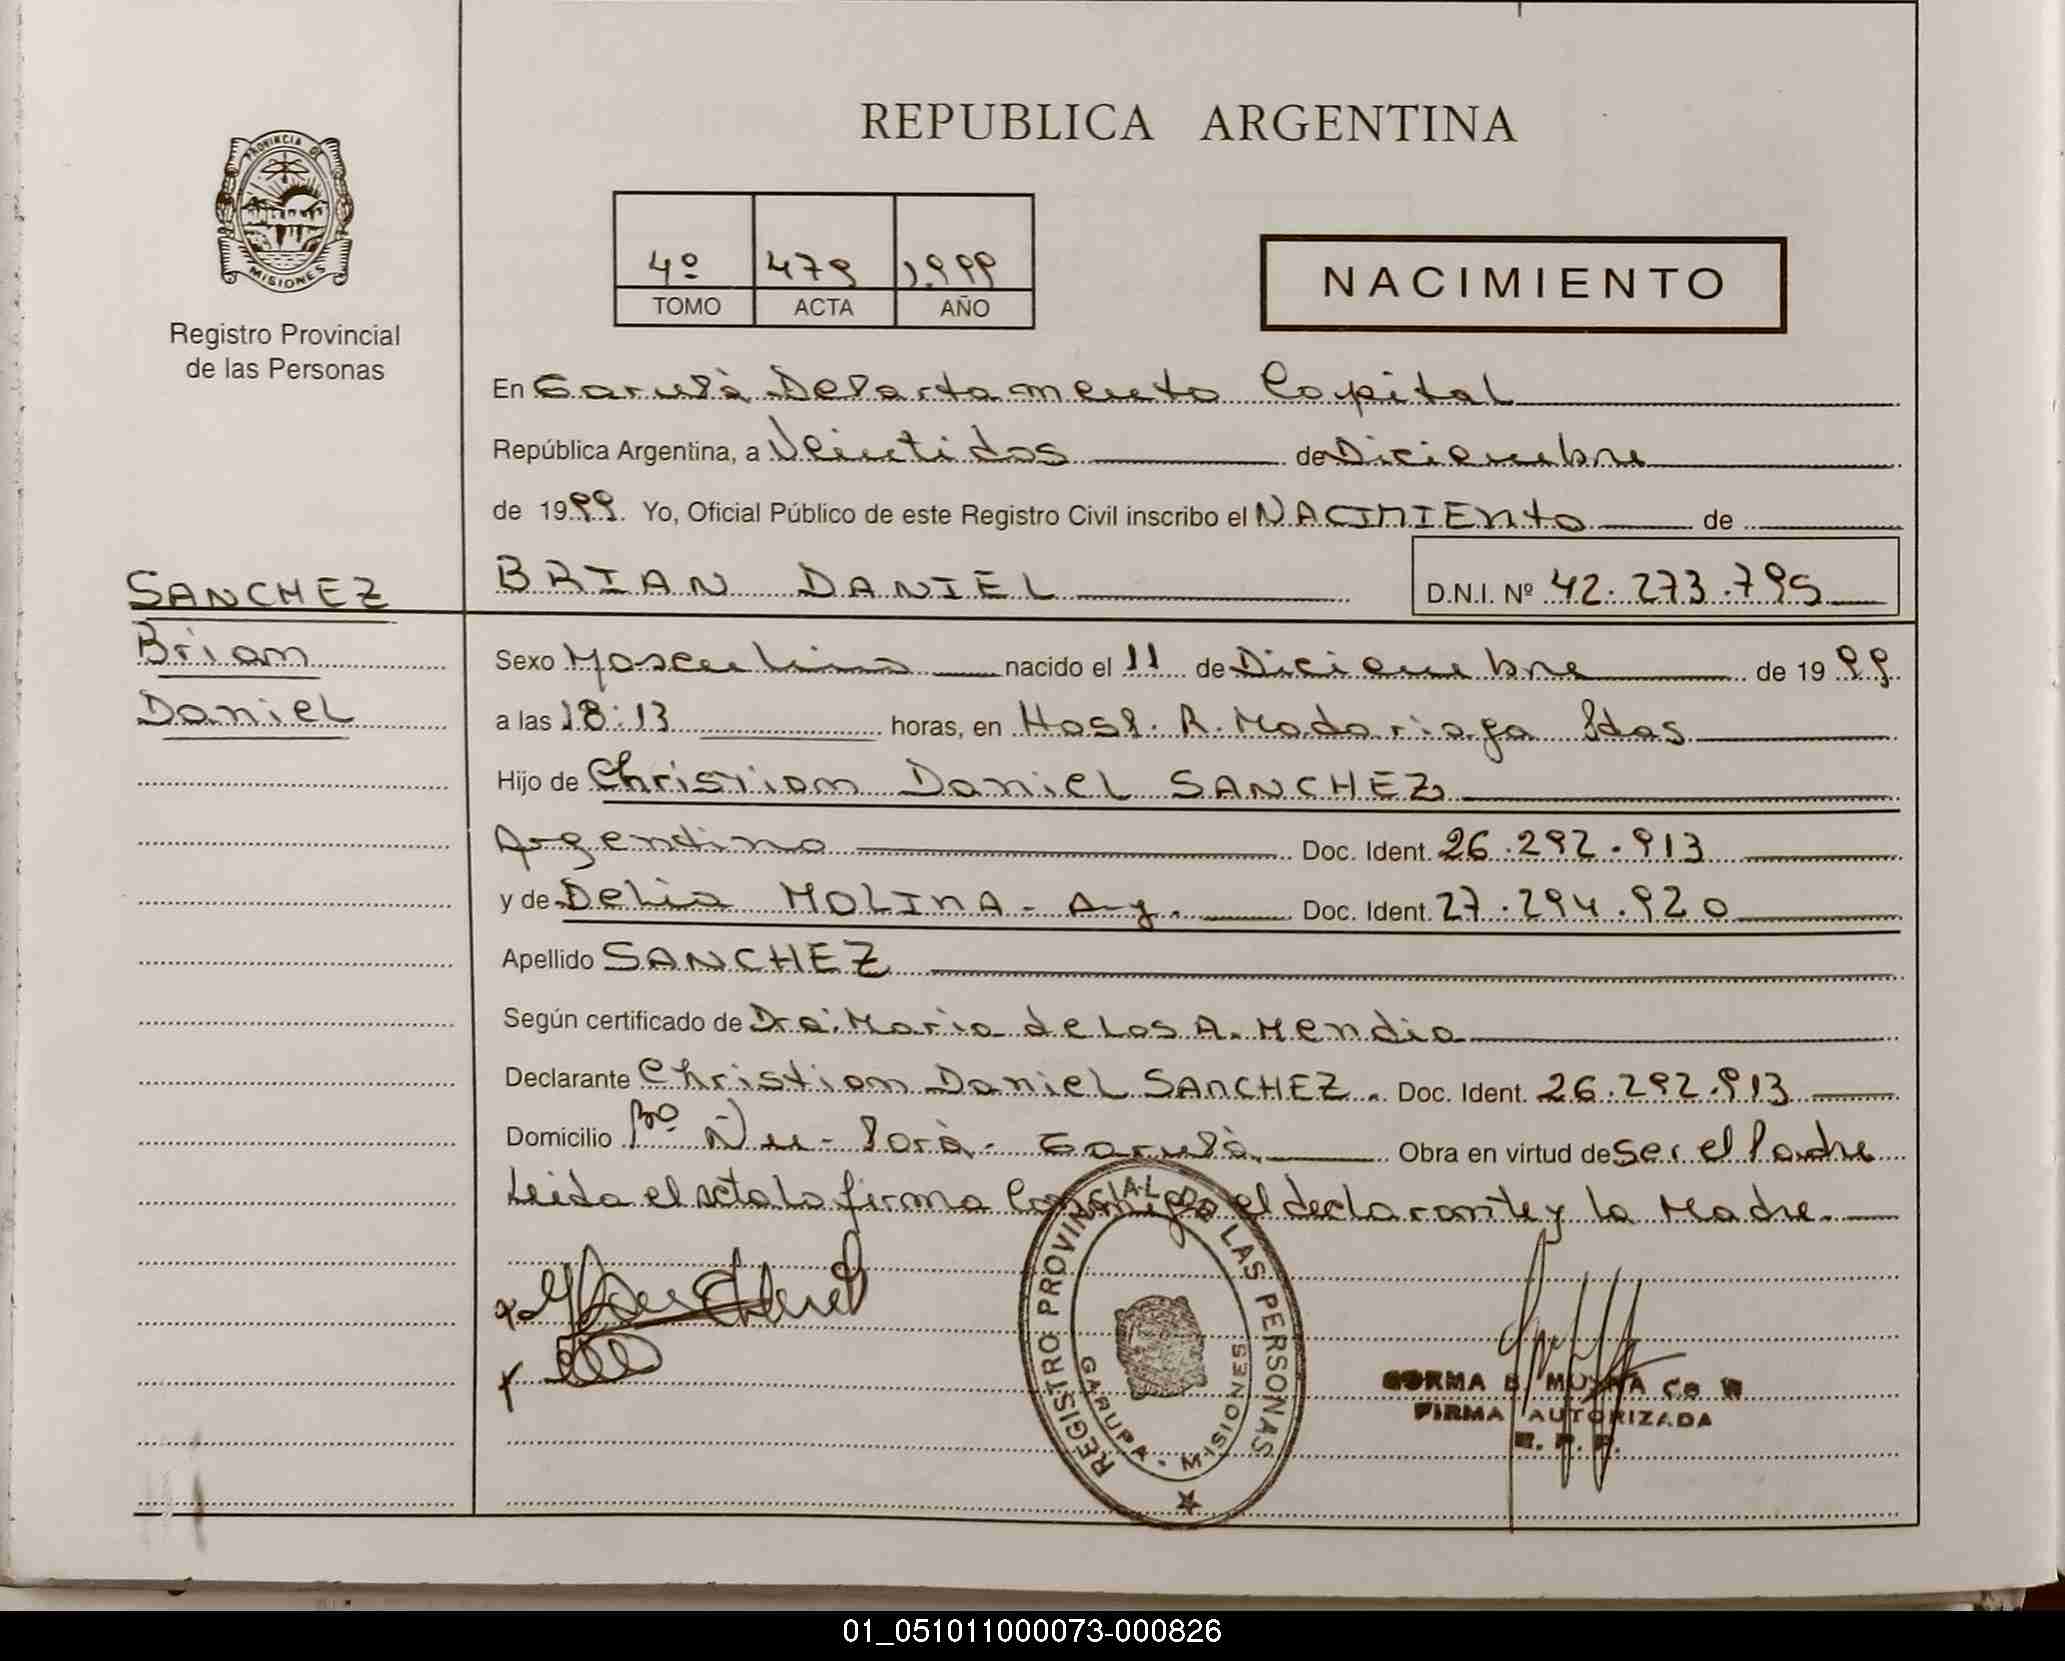 REPUBLICA ARGENTINA
PROVINCIA DE MISIONES
Registro Provincial
de las Personas
4º 479 1.999
TOMO ACTA AÑO
NACIMIENTO
En Garupá Departamento Capital
República Argentina, a Veintidos de Diciembre
de 1999. Yo, Oficial Público de este Registro Civil inscribo el NACIMIENto de
BRIAN DANIEL D.N.I. Nº 42.273.795
SANCHEZ
Brian
Daniel
Sexo Masculino nacido el 11 de Diciembre de 1999
a las 18:13 horas, en Hosp. R. Madariaga Pdas
Hijo de Christian Daniel SANCHEZ
Argentino Doc. Ident. 26.292.913
y de Delia MOLINA - Arg. Doc. Ident. 27.294.920
Apellido SANCHEZ
Según certificado de Dra. Maria de Los A. Mendia
Declarante Christian Daniel SANCHEZ. Doc. Ident. 26.292.913
Domicilio Bº Ñu-Porá - Garupá. Obra en virtud de ser el Padre
Leida el acta la firma Conmigo el declarante y la Madre.
REGISTRO PROVINCIAL DE LAS PERSONAS
GARUPA - MISIONES
FIRMA AUTORIZADA
R. P. P.
01_051011000073-000826